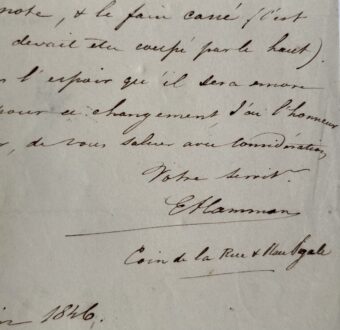 note, & le faire carré (c'est
devait être coupé par le haut).
l'espoir qu'il sera encore
pour ce changement J'ai l'honneur
, de vous saluer avec Considération
Votre servitr.
EHamman
Coin de la Rue & Place Royale
1846.